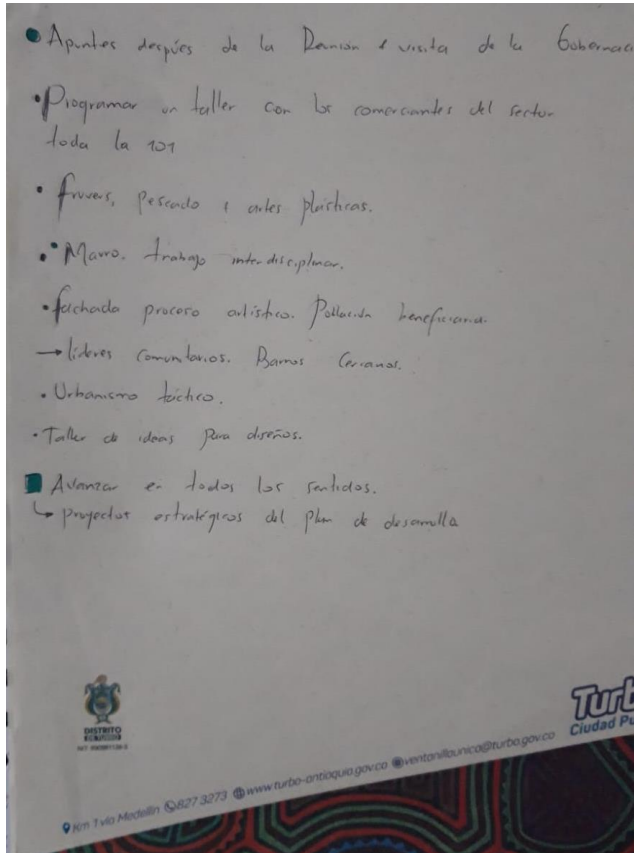 Apuntes después de la Reunión & visita de la Gobernaci
• Programar un taller con los comerciantes del sector
toda la 101
• fruvers, pescado & artes plásticas.
• Marro. trabajo interdisciplinar.
• fachada proceso artístico. Población beneficiaria.
→ líderes comunitarios. Barrios Cercanos.
• Urbanismo táctico.
• Taller de ideas para diseños.
Avanzar en todos los sentidos.
↳ proyectos estratégicos del plan de desarrollo
DISTRITO
DE TURBO
Turb
Ciudad Pu
Km 1 vía Medellín 827 3273 www.turbo-antioquia.gov.co ventanillaunica@turbo.gov.co